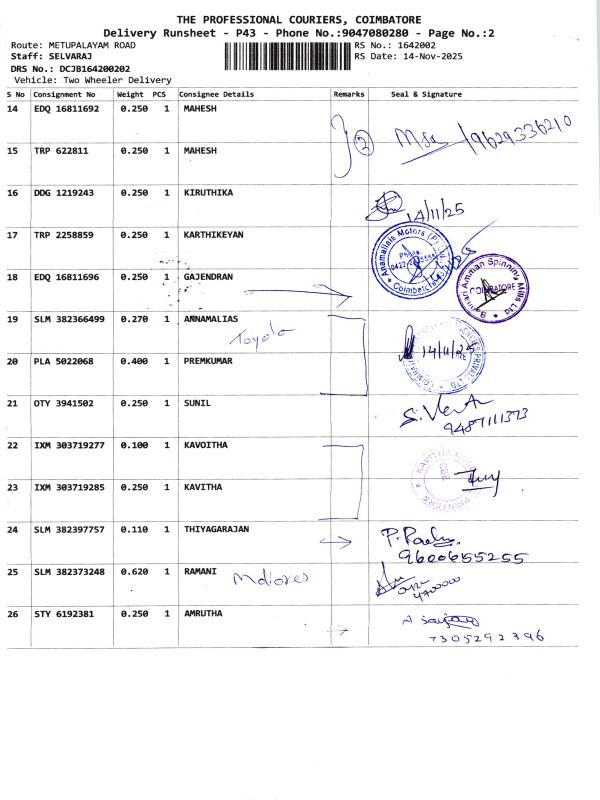 THE PROFESSIONAL COURIERS, COIMBATORE
Delivery Runsheet - P43 - Phone No.:9047080280 - Page No.:2
Route: METUPALAYAM ROAD RS No.: 1642002
Staff: SELVARAJ RS Date: 14-Nov-2025
DRS No.: DCJB164200202
Vehicle: Two Wheeler Delivery
S No Consignment No Weight PCS Consignee Details Remarks Seal & Signature
14 EDQ 16811692 0.250 1 MAHESH
2 9629336210
15 TRP 622811 0.250 1 MAHESH
16 DDG 1219243 0.250 1 KIRUTHIKA
14/11/25
17 TRP 2258859 0.250 1 KARTHIKEYAN
Anamallais Motors (P) Ltd
Phone
Coimbatore
18 EDQ 16811696 0.250 1 GAJENDRAN
Bannari Amman Spinning Mills Ltd
COIMBATORE
19 SLM 382366499 0.270 1 ANNAMALIAS
Toyota
20 PLA 5022068 0.400 1 PREMKUMAR
14/11/25
PRIVATE LTD
21 OTY 3941502 0.250 1 SUNIL
9487111373
22 IXM 303719277 0.100 1 KAVOITHA
KAVITHA
CBE
PRINTERS
23 IXM 303719285 0.250 1 KAVITHA
24 SLM 382397757 0.110 1 THIYAGARAJAN
9600655255
25 SLM 382373248 0.620 1 RAMANI
26 STY 6192381 0.250 1 AMRUTHA
7305292396